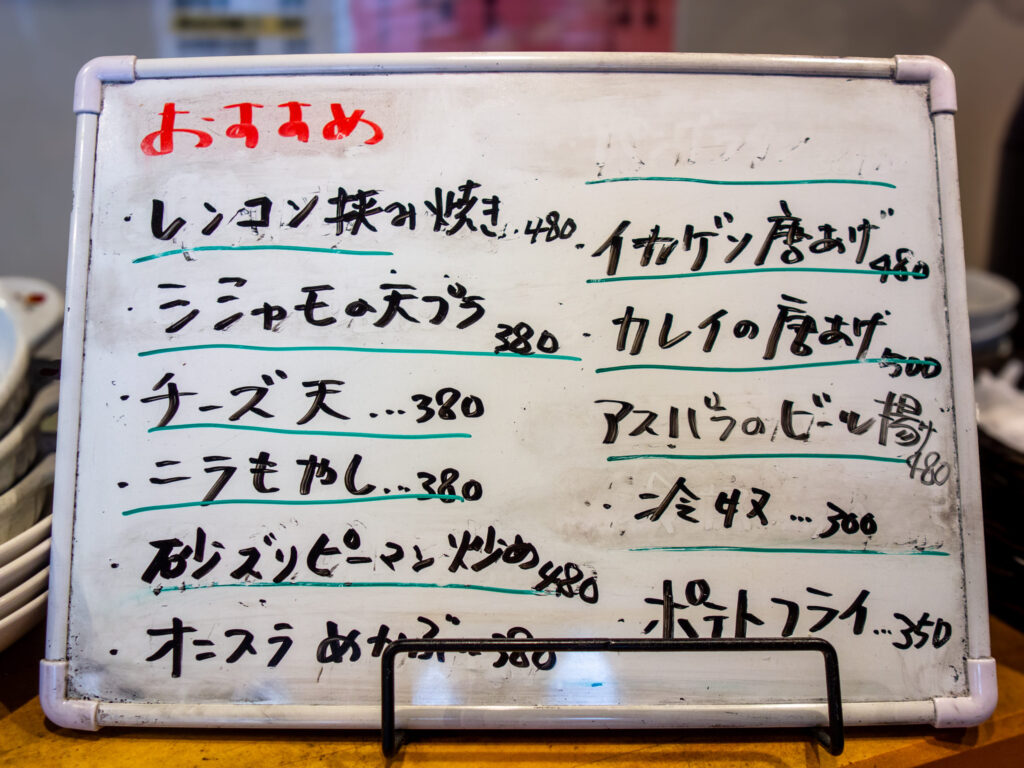 おすすめ
・レンコン挟み焼き.480
・シシャモの天ブラ 380
・チーズ天...380
・ニラもやし...380
・砂ズリピーマン炒め 480
・オニスラ めかぶ...380
・イカゲソ唐あげ 480
・カレイの唐あげ 500
アスパラのビール揚げ 480
・冷奴...300
・ポテトフライ...350